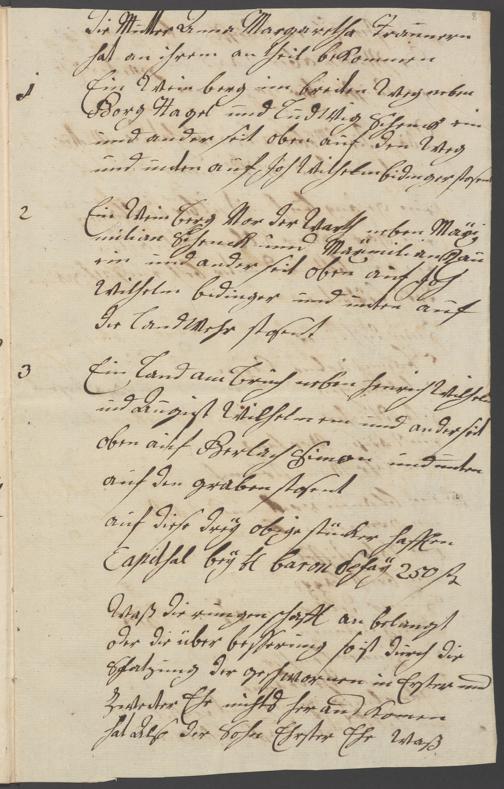 die Mutter Anna Margaretha Traunern
hat an ihrem antheil bekommen
1 Ein Weinberg im breiden Weg neben
Georg Hagel und Ludwig Schenck ein
und anderseit oben auf den Weg
und unten auf Joh Wilhelm bidinger stosent
2 Ein Weinberg Vor der Warth neben Maxi
milian Schenck und Maximilian
ein und anderseit oben auf Joh
Wilhelm bidinger und unten auf
die Landwehr stosent
3 Ein Land am bruch neben Henrich Wilhelm
und August Wilhelm ein und anderseit
oben auf Gerlach Simon und unten
auf den graben stosent
auf diese dreÿ obige stücker hafften
Capithal beÿ H baron 250 f
Waß die rungenschafft an belangt
oder die über besserung so ist durch die
Schatzung der geschwornen in Erster und
Zweiter Ehe nichts her aus komen
hat als der Sohn Erster Ehe Waß